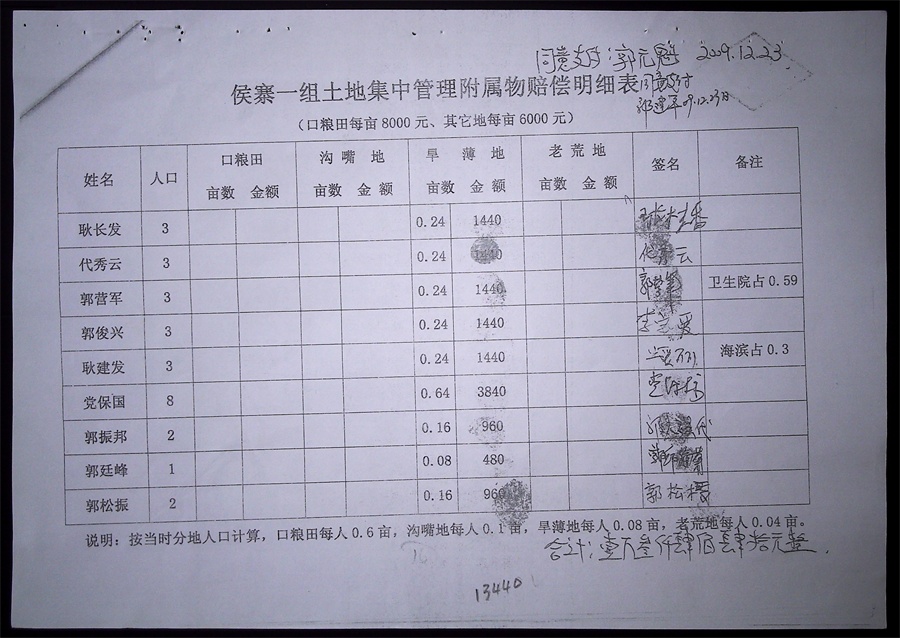 同意支付:郭元魁 2009.12.23
侯寨一组土地集中管理附属物赔偿明细表
同意支付
09.12.23日
（口粮田每亩8000元、其它地每亩6000元）
姓名 人口 口粮田 沟嘴地 旱薄地 老荒地 签名 备注
亩数 金额 亩数 金额 亩数 金额 亩数 金额
耿长发 3 0.24 1440
代秀云 3 0.24 1440
郭营军 3 0.24 1440 卫生院占0.59
郭俊兴 3 0.24 1440
耿建发 3 0.24 1440 海滨占0.3
党保国 8 0.64 3840
郭振邦 2 0.16 960
郭廷峰 1 0.08 480
郭松振 2 0.16 960 郭松振
说明：按当时分地人口计算，口粮田每人0.6亩，沟嘴地每人0.1亩，旱薄地每人0.08亩，老荒地每人0.04亩。
合计：壹万叁仟肆佰肆拾元整.
13440